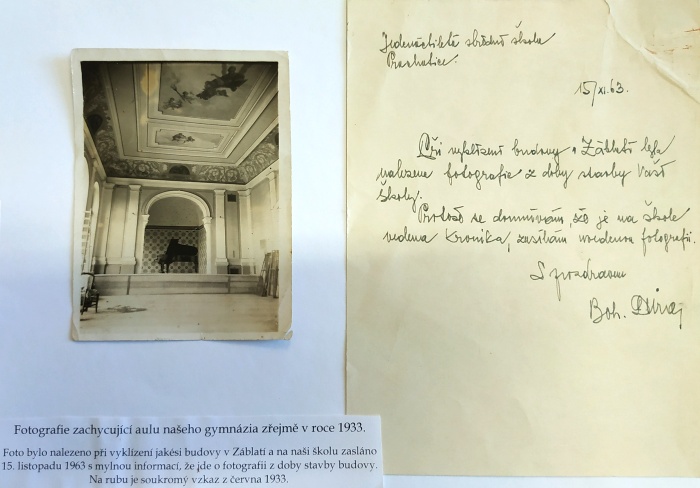 Jedenáctiletá střední škola
Prachatice.
15/XI.63.
Při vyklízení budovy v Záblatí byla
nalezena fotografie z doby stavby Vaší
školy.
Protože se domnívám, že je na škole
vedena kronika, zasílám uvedenou fotografii.
S pozdravem
Boh.
Fotografie zachycující aulu našeho gymnázia zřejmě v roce 1933.
Foto bylo nalezeno při vyklízení jakési budovy v Záblatí a na naši školu zasláno
15. listopadu 1963 s mylnou informací, že jde o fotografii z doby stavby budovy.
Na rubu je soukromý vzkaz z června 1933.